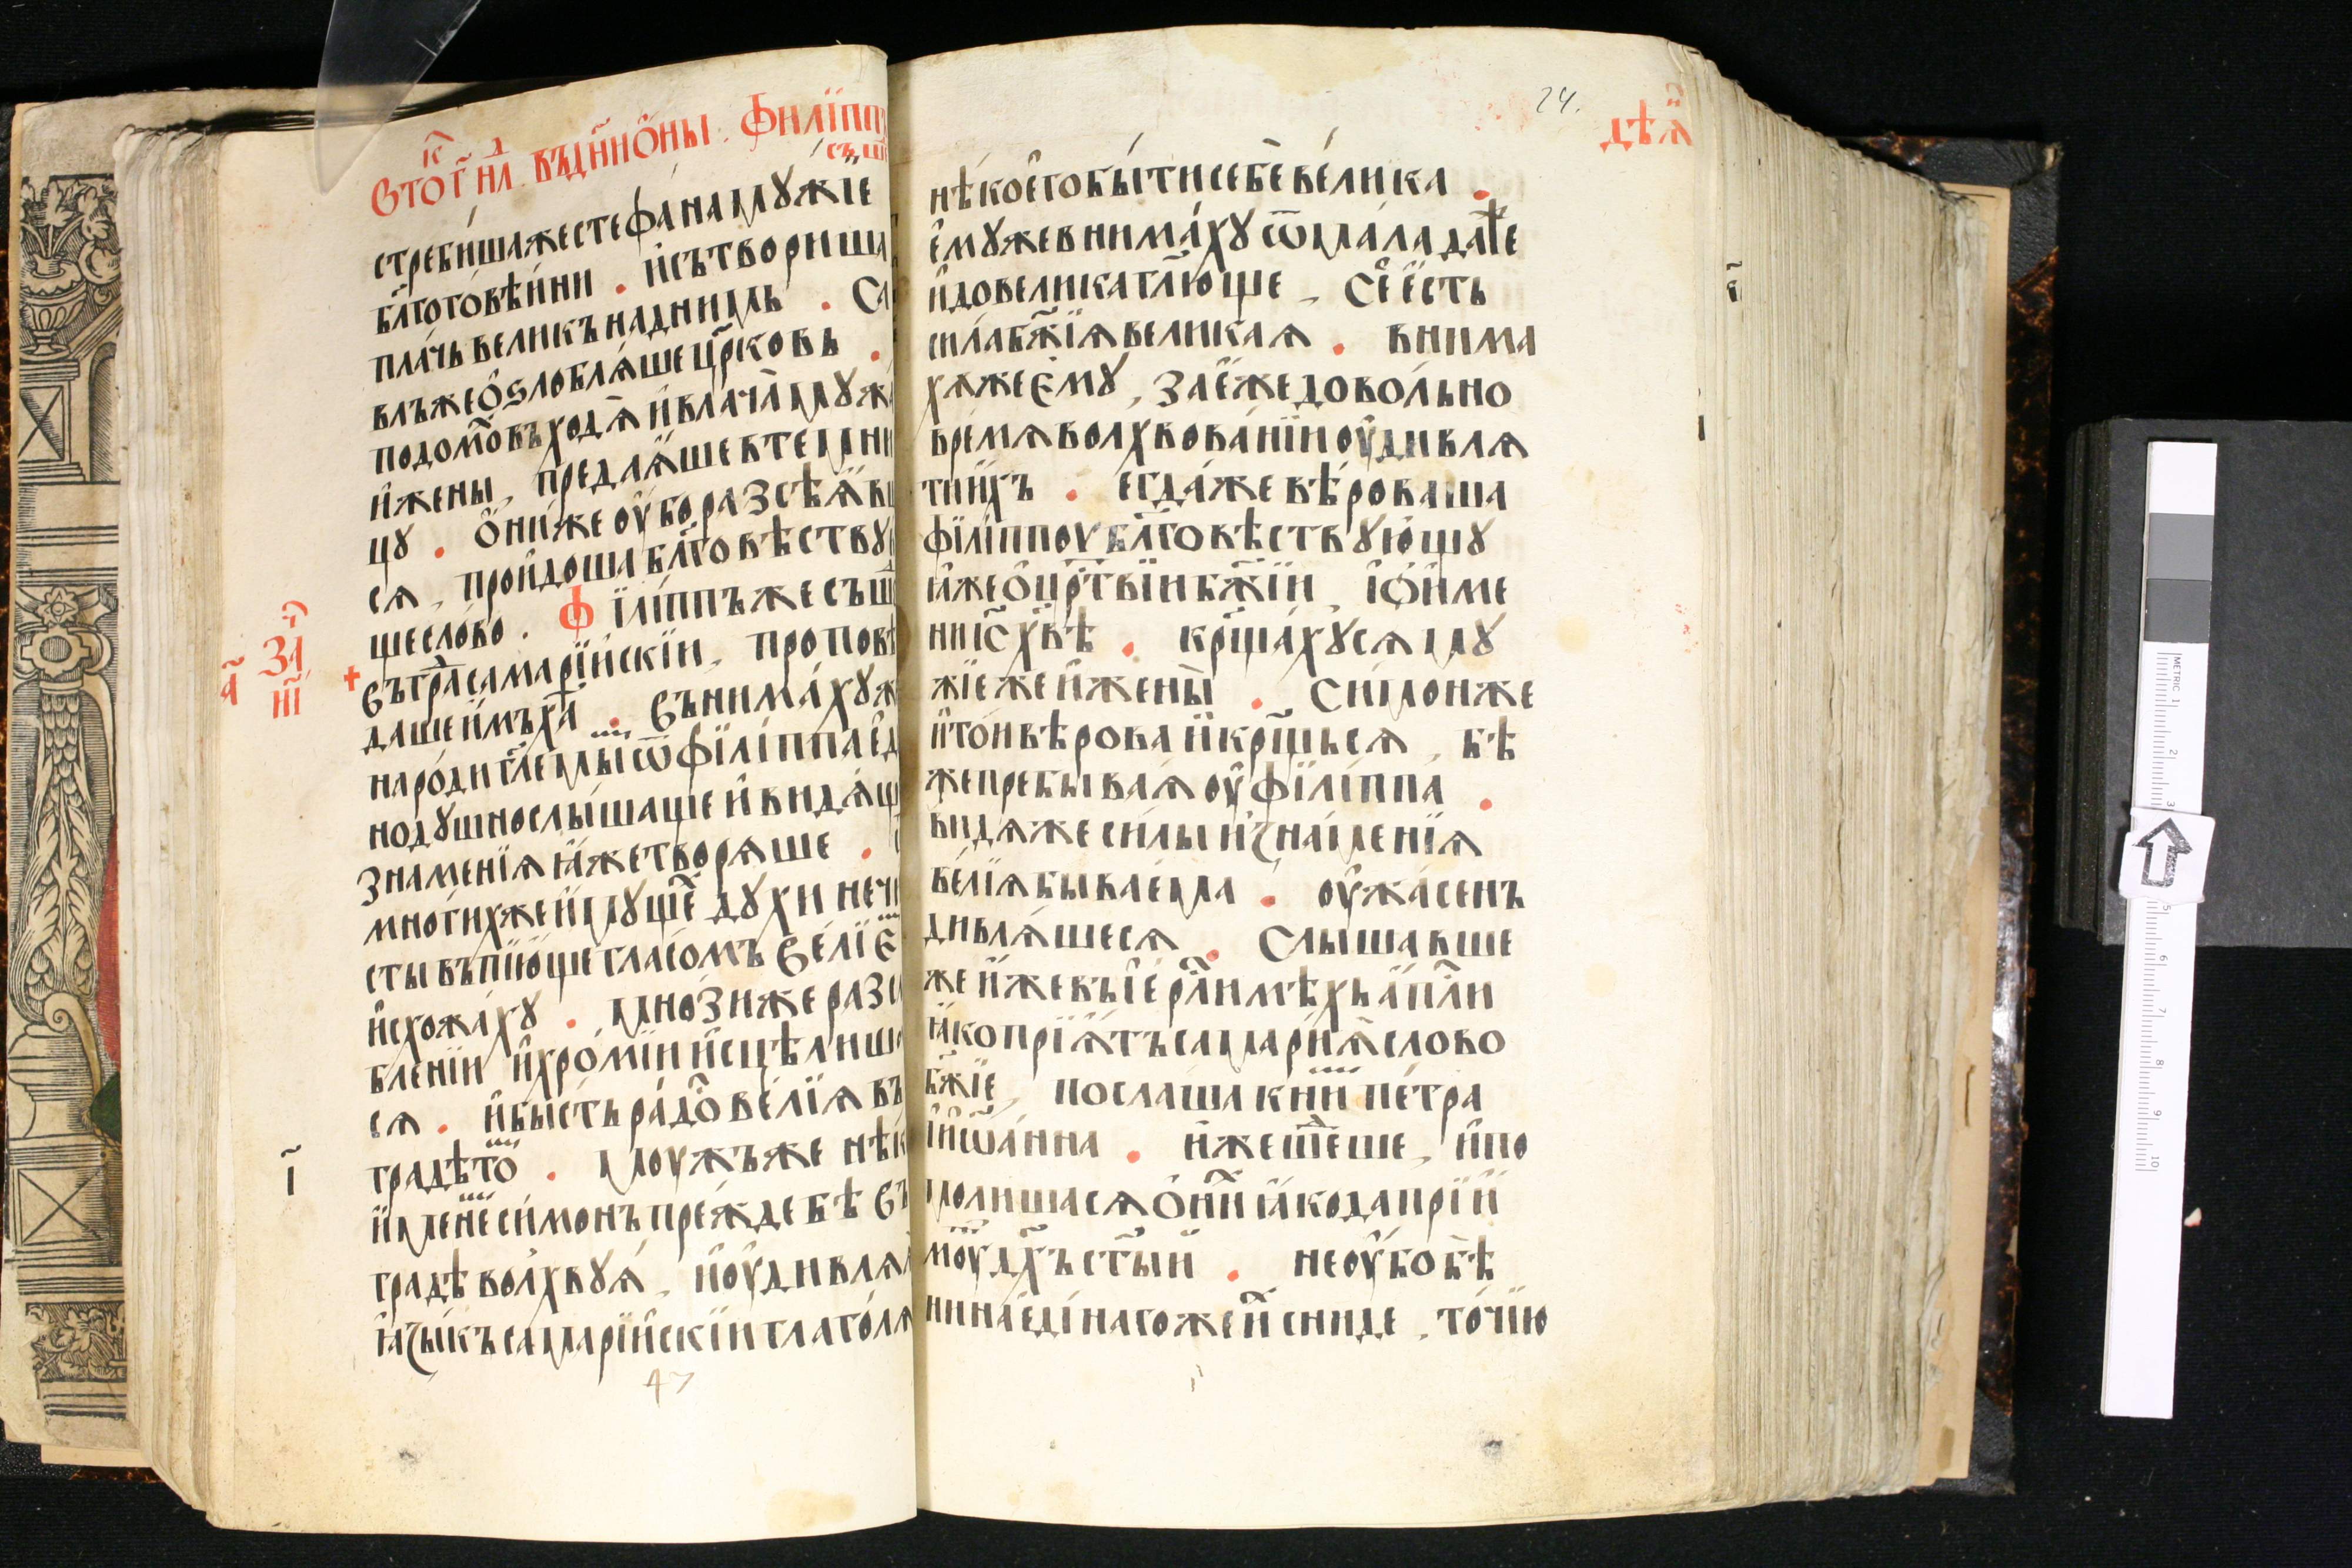 Вто г҃ нⷣл въдн҃иѻ́ны. Филїпп
съш
стреби́шажестефа́намꙋжїе
бл҃гоговѣ́йни . и҆сътвориша
пла́чьвеликънаднимь . Са
влъжеѻ҆ѕлоблѧ́шецр҃ковь .
подомо́въходѧ̀ и҆влача̀мꙋж
и҆жены, предаꙗ́шевтемни
цꙋ . Ѻ҆ни́жеоу҆боразсѣѧв
сѧ, проидошабл҃говѣствꙋ
щесло́во . Фїлі́ппъжесъш
Въгра́самарїи́скїи, пропов
дашеи҆мъхаⷭ҇ . Вънима́хꙋж
наро́диглемыѿфїлі́ппаед
нодꙋшнослы́шащеи҆видѧщ
знаменїѧꙗ҆жетворѧше .
мно́гихжеи҆мꙋщеⷯдꙋхинечи
стывъпїю́щегласомъВе́лїе
и҆схожа́хꙋ . мно́зижеразс
бленїи и҆хро́мїии҆сцѣлиш
сѧ . и҆бы́стьра́доⷭве́лїѧвъ
градѣто́ . моужъженѣк
и҆мене́си́монъпре́ждебѣВъ
градѣвол́хвꙋѧ, и҆оу҆дивлѧѧ
ꙗ҆зы́късамарїи́скїиглаго́лѧ
47
за
н҃і
а҃
і҃
24.
дѣѧ
нѣ́коего҆бы́тисебѐве́лика .
е҆мꙋжевнима́хꙋѿма́ладаже
и҆довеликагл҃юще, Се҆е҆сть
силабж҃їѧвеликаѧ . внима
хꙋжее҆мꙋ, зае҆́жедово́льно
вре́мѧволхвова́нїиоу҆дивлѧ
тии҆хъ . егда́жевѣ́роваша
фїлі́ппоубл҃говѣствꙋющꙋ
ꙗ҆жеѻ҆црⷭ҇твїибж҃їи, іѻ҆и҆ме
ниі҆с҃хвѣ . крⷭ҇ща́хꙋсѧмꙋ
жїежеи҆жены̀ . Си́монже
и҆то́ивѣроваи҆крⷭ҇щьсѧ, бѣ
жепребываѧоу҆фїлі́ппа .
видѧжеси́лыи҆зна́менїѧ
ве́лїѧбывае́ма . оу҆жа́сенъ
дивлѧ́шесѧ . Слышавше
жеи҆жевъі҆ерⷭ҇лимѣхъа҆пⷭ҇ли
ꙗ҆копрїѧ́тъсамари́ѧслово
бж҃їе, посла́шакни́пе́тра
и҆і҆ѡа́нна . и҆жешеⷣше, и҆по
молишасѧѻ҆ни́ꙗ҆кодапрїи
мꙋⷮдх҃ъст҃ыи . неоу҆бобѣ
нинае҆ди́нагожеи҆сниде, то́чїю